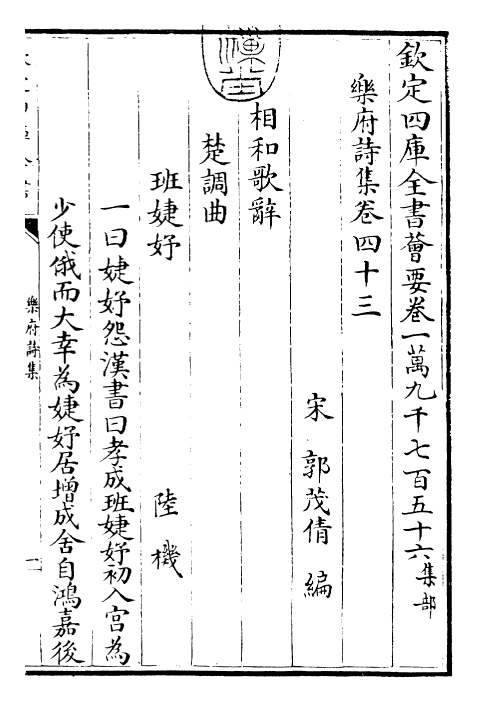 欽定四庫全書薈要卷一萬九千七百五十六集部
樂府詩集卷四十三
宋 郭茂倩 編
相和歌辭
楚調曲
班婕妤 陸機
一曰婕妤怨漢書曰孝成班婕妤初入宫為
少使俄而大幸為婕妤居增成舍自鴻嘉後
樂府詩集
一